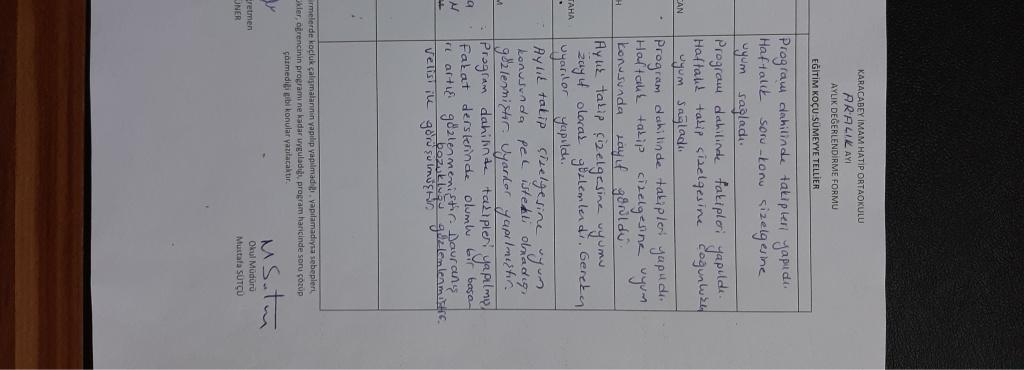 KARACABEY İMAM HATİP ORTAOKULU
ARALIK AYI
AYLIK DEĞERLENDİRME FORMU
EĞİTİM KOÇU SÜMEYYE TELLİER
Program dahilinde takipleri yapıldı.
Haftalık soru-konu çizelgesine
uyum sağladı.
CAN
Program dahilinde takipleri yapıldı.
Haftalık takip çizelgesine çoğunlukla
uyum sağladı.
H
Program dahilinde takipleri yapıldı.
Haftalık takip çizelgesine uyum
konusunda zayıf görüldü.
TAHA
Aylık takip çizelgesine uyumu
zayıf olarak gözlemlendi. Gereken
uyarılar yapıldı.
M
Aylık takip çizelgesine uyum
konusunda pek istekli olmadığı
gözlenmiştir. Uyarılar yapılmıştır.
Program dahilinde takipleri yapılmış,
fakat derslerinde olumlu bir başa
rı artışı gözlenmemiştir. Davranış
bozukluğu gözlemlenmiştir.
Velisi ile görüşülmüştür.
irmelerde koçluk çalışmalarının yapılıp yapılmadığı, yapılamadıysa sebepleri,
kler, öğrencinin programı ne kadar uyguladığı, program haricinde soru çözüp
çözmediği gibi konular yazılacaktır.
retmen
ÜNER
Okul Müdürü
Mustafa SÜTÇÜ